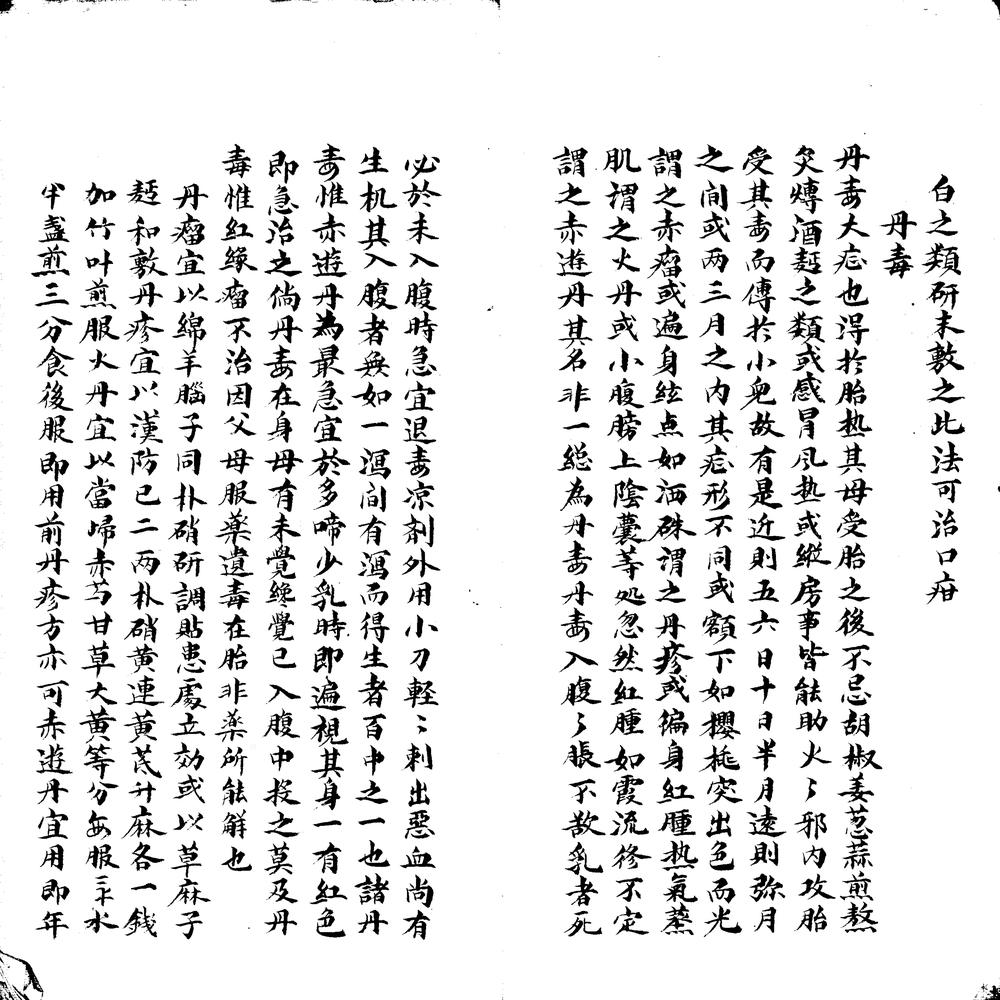 白之類研末敷之此法可治口疳
丹毒
丹毒大症也淂於胎热其母受胎之後不忌胡椒姜葱蒜煎熬
炙煿酒麪之類或感冒风热或縱房事皆能助火〻邪内攻胎
受其毒而傳於小児故有是近則五六日十日半月遠則弥月
之间或两三月之内其症形不同或額下如櫻桃突出色而光
謂之赤瘤或遍身絃点如洒硃謂之丹疹或徧身红腫热氣蒸
肌謂之火丹或小腹膀上陰囊等处忽然红腫如霞流移不定
謂之赤遊丹其名非一総為丹毒丹毒入腹〻脹不散乳者死
必於未入腹時急宜退毒凉剤外用小刀軽〻刺出惡血尚有
生机其入腹者無如一瀉间有瀉而得生者百中之一也諸丹
毒惟赤遊丹為最急宜於多啼少乳時即遍視其身一有红色
即急治之倘丹毒在身母有未覺纔覺已入腹中投之莫及丹
毒惟红緣瘤不治因父母服薬遺毒在胎非薬所能解也
丹瘤宜以綿羊腦子同朴硝研調貼患處立効或以草麻子
麪和敷丹疹宜以漢防已二两朴硝黄連黄芪升麻各一銭
加竹叶煎服火丹宜以當歸赤芍甘草大黄等分每服三丰水
半盞煎三分食後服即用前丹疹方亦可赤遊丹宜用即年